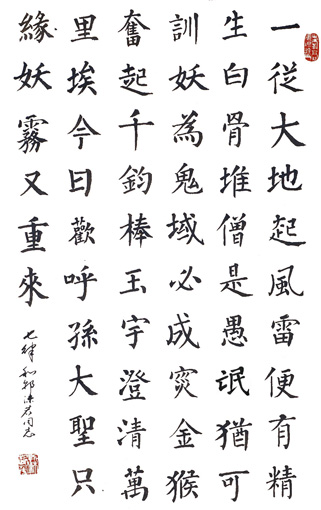 一從大地起風雷便有精
生白骨堆僧是愚氓猶可
訓妖為鬼域必成灾金猴
奮起千鈞棒玉宇澄清萬
里埃今日歡呼孫大聖只
緣妖霧又重來
七律和郭沫若同志